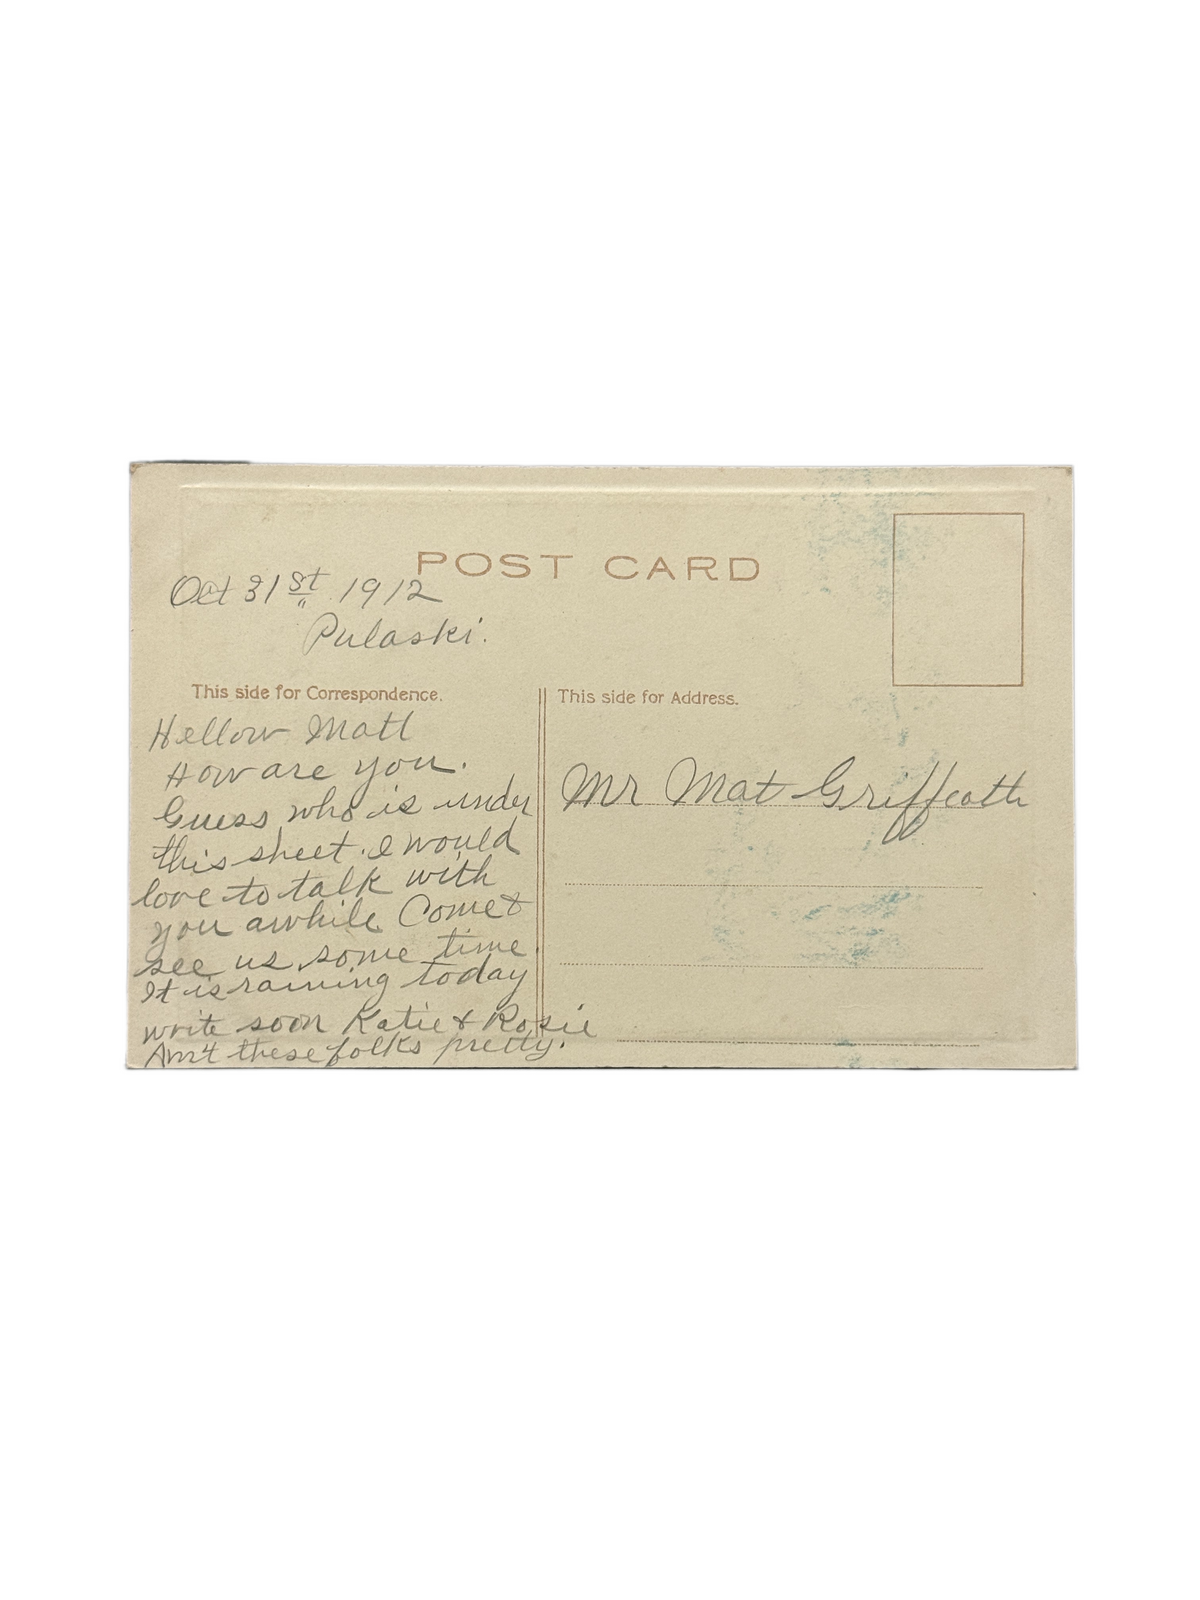 POST CARD
Oct 31st 1912
Pulaski.
This side for Correspondence.
Hellow Matt
How are you.
Guess who is under
this sheet. I would
love to talk with
you awhile. Come &
see us some time.
It is raining today
write soon Katie & Rosie
Ain't these folks pretty.
This side for Address.
Mr Mat Griffeath